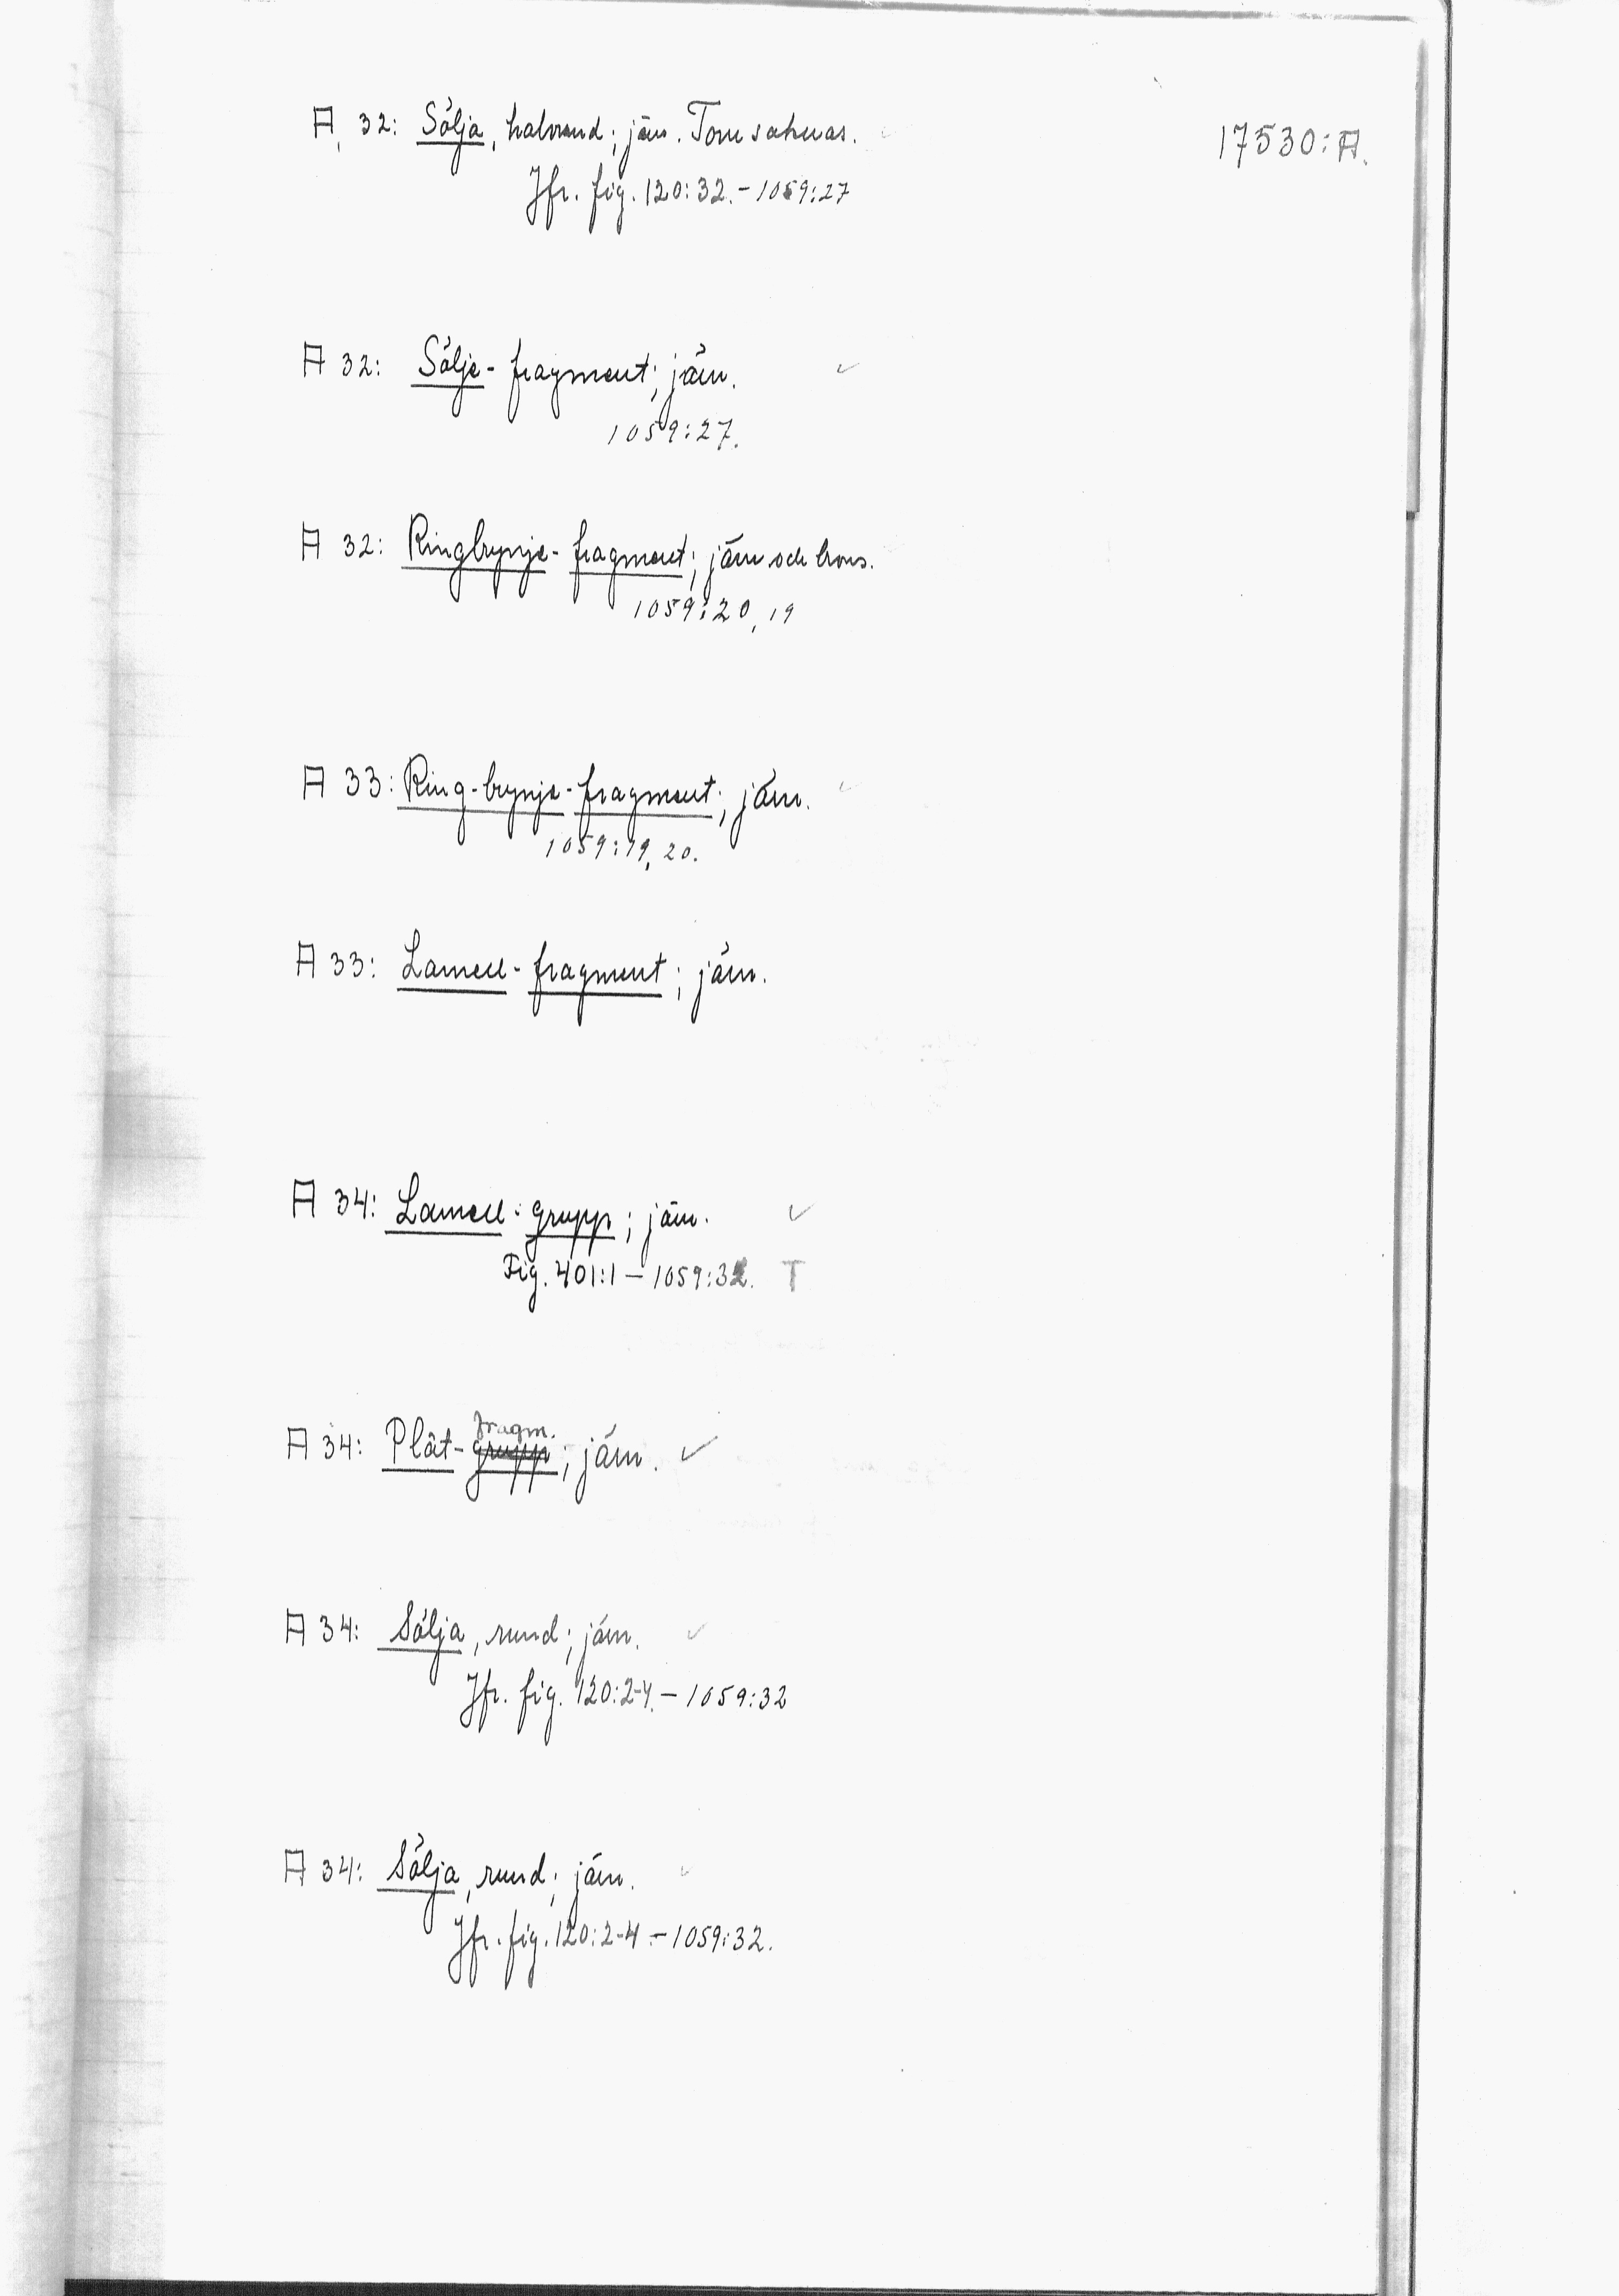 17530:A.
A, 32: Sölja, halvrund; järn. Torne saknas.
Jfr. fig. 120:32.-1059:27
A 32: Sölje-fragment; järn.
1059:27.
A 32: Ringbrynje-fragment; järn och brons.
1059:20, 19
A 33: Ring-brynje-fragment; järn.
1059:19, 20.
A 33: Lamell-fragment; järn.
A 34: Lamell-grupp; järn. ✓
Fig. 401:1 – 1059:32. T
fragm.
A 34: Plåt-grupp; järn. ✓
A 34: Sölja, rund; järn. ✓
Jfr. fig. 120:2-4. – 1059:32
A 34: Sölja, rund; järn.
Jfr. fig. 120:2-4 – 1059:32.